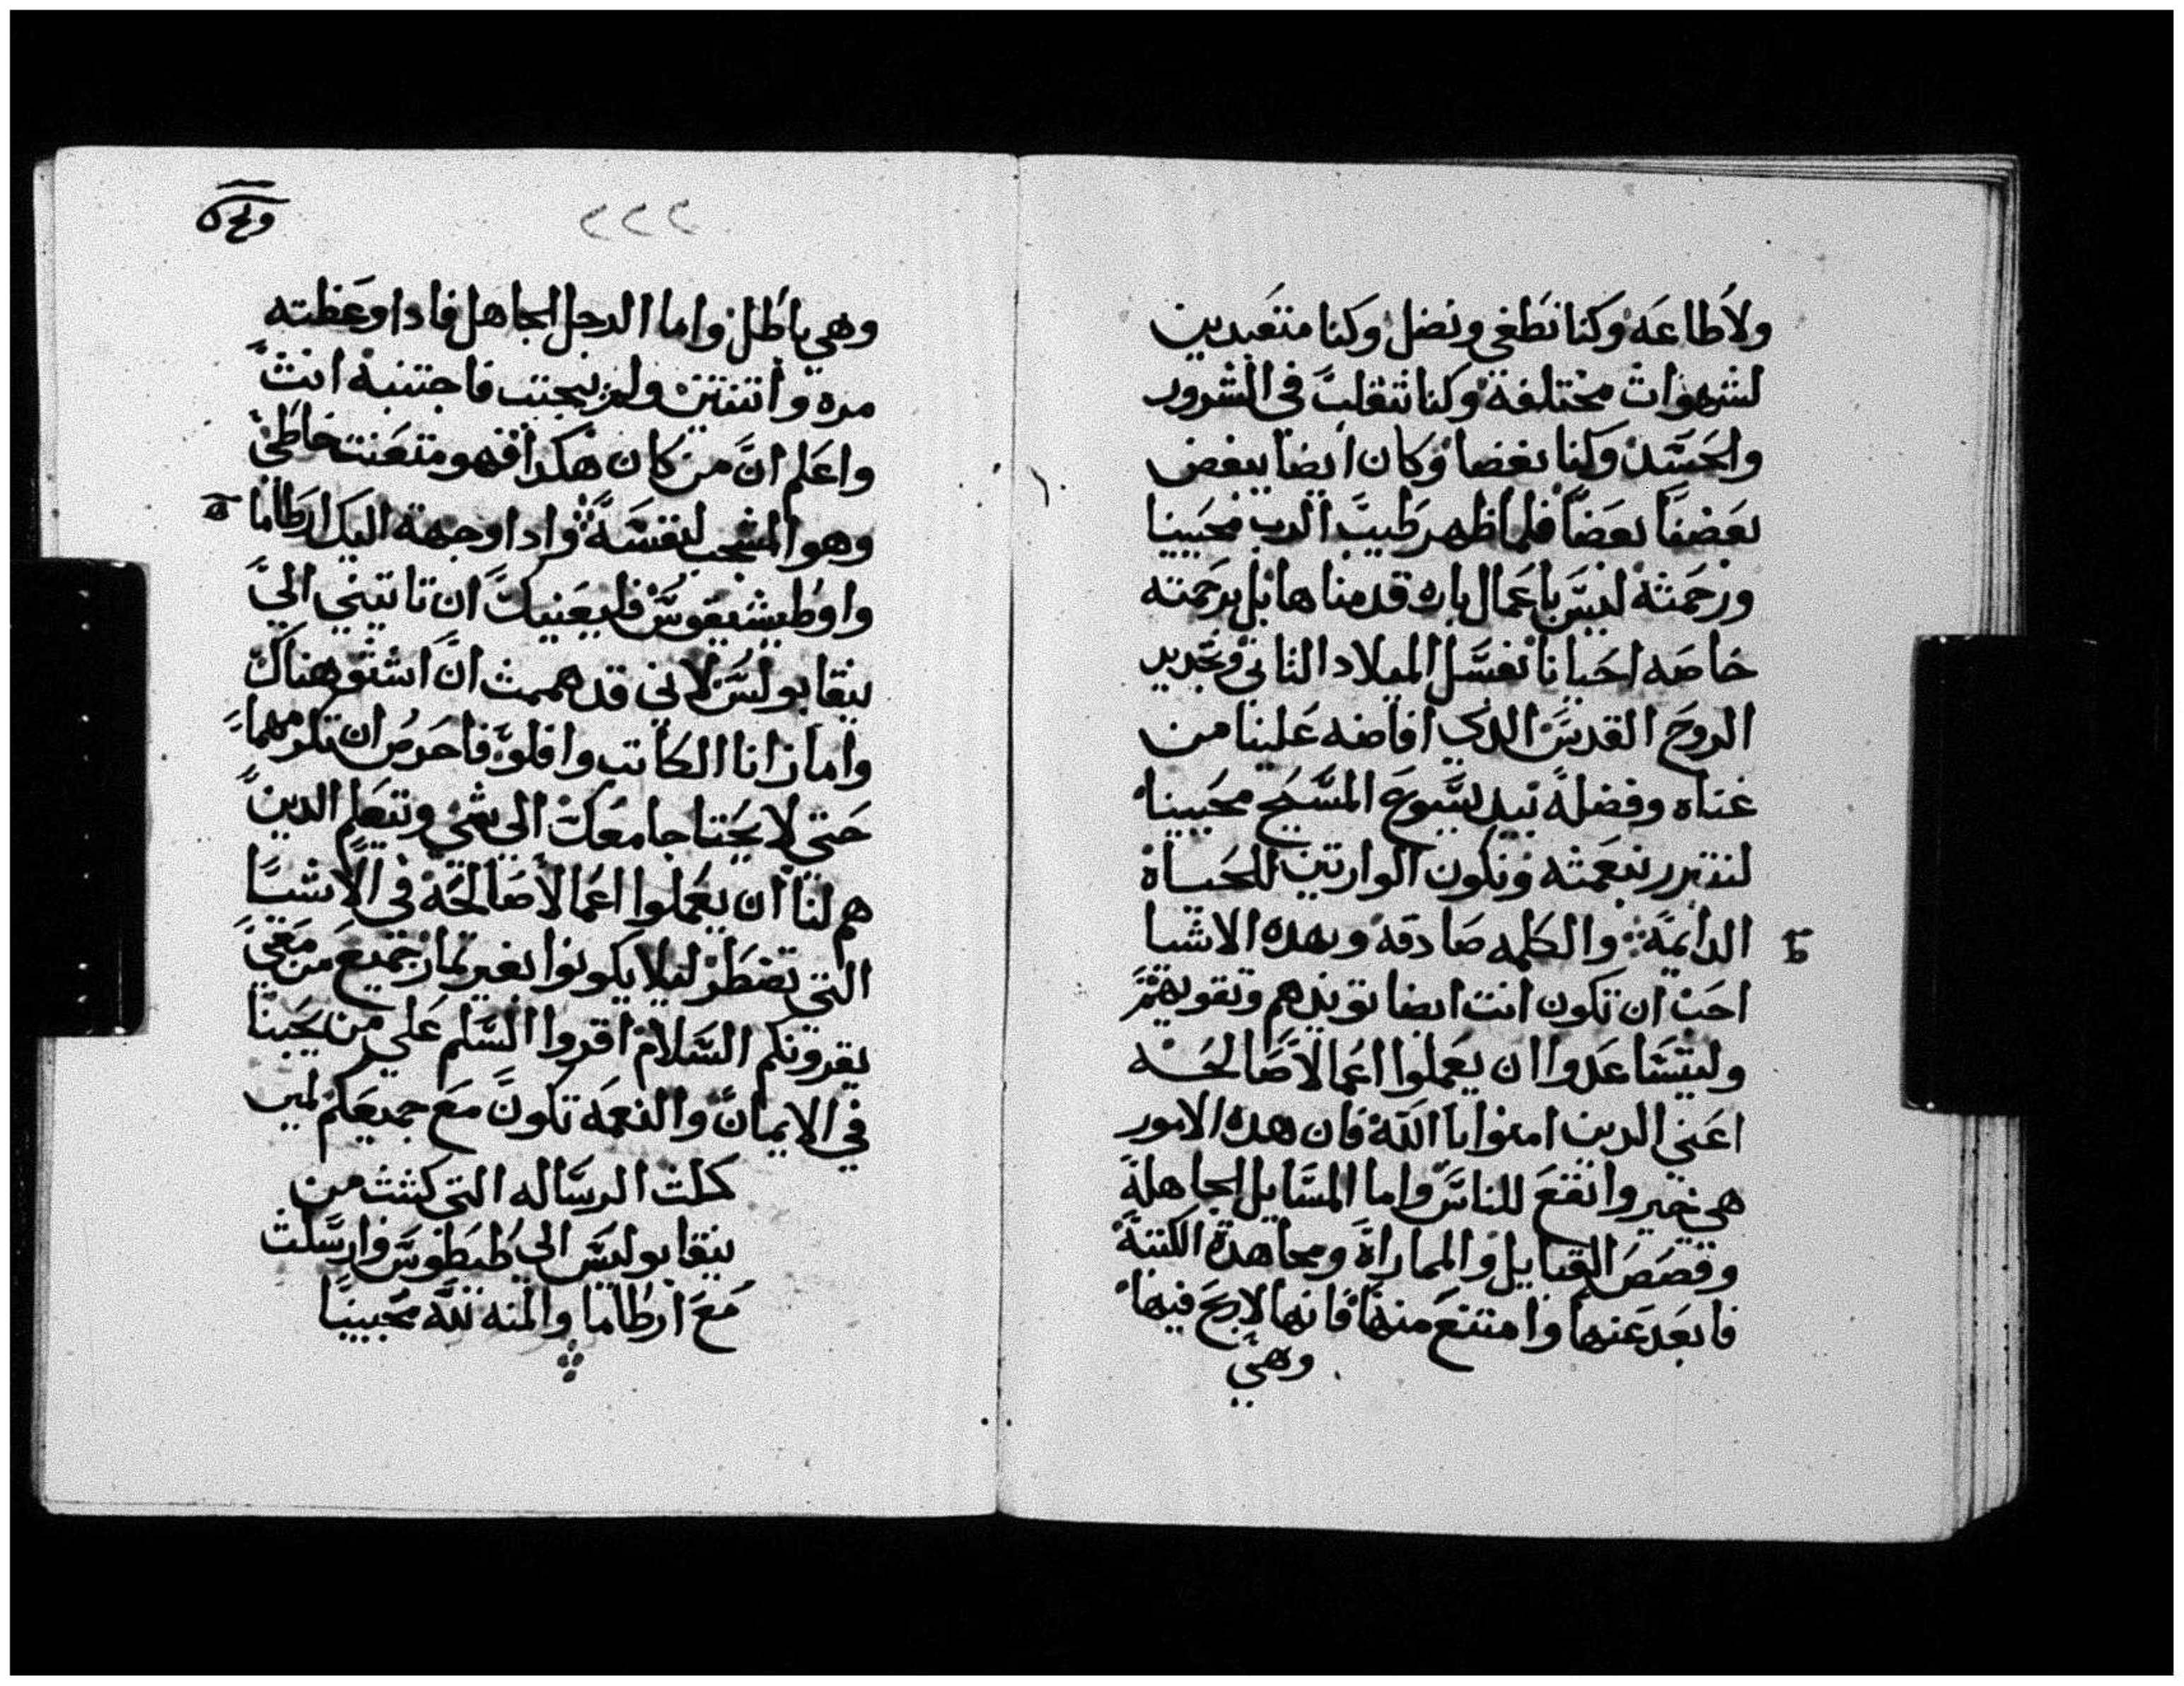 ولاطاعه وكنا نطغي ونضل وكنا متعبدين
لشهوات مختلفة وكنا نتقلب في الشرور
والحسد وكنا بغضا وكان ايضا يبغض
بعضنا بعضا فلما ظهر طيب الرب محيينا
ورحمته ليس باعمال باره قدمناها بل برحمته
خاصه احيانا بغسل الميلاد الثاني وتجديد
الروح القدس الدي افاضه علينا من
غناه وفضله بيد يسوع المسيح محيينا
لنتبرر بنعمته ونكون الوارتين للحياة
الدايمة والكلمه صادقه وبهده الاشيا
احب ان تكون انت ايضا تويدهم وتقويهم
وليتساعدوا ان يعملوا اعمالا صالحه
اعني الدين امنوا بالله فان هده الامور
هي خير وانفع للناس واما المسايل الجاهلة
وقصص القبايل والمماراة ومجاهدة الكتبة
فابعد عنها وامتنع منها فانها لاربح فيها
وهي
٢٢٢
وهي باطل واما الرجل الجاهل فادا وعظته
مره واتنتين ولم يجتنب فاجتنبه انت
واعلم ان من كان هكدا فهو متعنت خاطي
وهو المشجب لنفسه وادا وجهت اليك ارطاما
واوطيشيقوس فليعنيك ان تاتيني الي
نيقابولس لاني قد هممت ان اشتو هناك
واما زانا الكاتب وافلو فاحرص ان تكرمهما
حتي لا يحتاجا معك الي شي وتتعلم الدين
هم لنا ان يعملوا اعمالا صالحة في الاشيا
التي تضطر ليلا يكونوا بغير تمار جميع من معي
يقرونكم السلام اقروا السلم علي من يحبنا
في الايمان والنعمه تكون مع جميعكم امين
كملت الرساله التي كتبت من
نيقابوليس الي طيطوس وارسلت
مع ارطاما والمنه لله محيينا